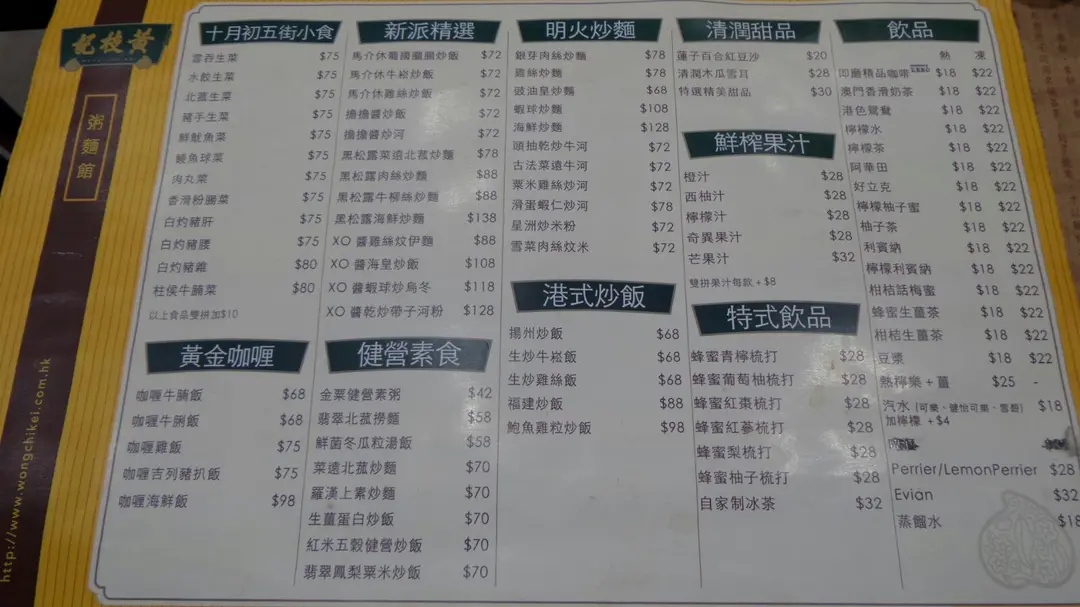 黃枝記
粥麵館
http://www.wongchikei.com.hk
十月初五街小食
雲吞生菜 $75
水餃生菜 $75
北菰生菜 $75
豬手生菜 $75
鮮魷魚菜 $75
鯪魚球菜 $75
肉丸菜 $75
香滑粉腸菜 $75
白灼豬肝 $75
白灼豬腰 $75
白灼豬雜 $80
柱侯牛腩菜 $80
以上食品雙拼加$10
黃金咖喱
咖喱牛腩飯 $68
咖喱牛脷飯 $68
咖喱雞飯 $75
咖喱吉列豬扒飯 $75
咖喱海鮮飯 $98
新派精選
馬介休葡國臘腸炒飯 $72
馬介休牛崧炒飯 $72
馬介休雞絲炒飯 $72
擔擔醬炒飯 $72
擔擔醬炒河 $72
黑松露菜遠北菰炒麵 $78
黑松露肉絲炒麵 $88
黑松露牛柳絲炒麵 $88
黑松露海鮮炒麵 $138
XO 醬雞絲炆伊麵 $88
XO 醬海皇炒飯 $108
XO 醬蝦球炒烏冬 $118
XO 醬乾炒帶子河粉 $128
健營素食
金粟健營素粥 $42
翡翠北菰撈麵 $58
鮮菌冬瓜粒湯飯 $58
菜遠北菰炒麵 $70
羅漢上素炒麵 $70
生薑蛋白炒飯 $70
紅米五穀健營炒飯 $70
翡翠鳳梨粟米炒飯 $70
明火炒麵
銀芽肉絲炒麵 $78
雞絲炒麵 $78
豉油皇炒麵 $68
蝦球炒麵 $108
海鮮炒麵 $128
頭抽乾炒牛河 $72
古法菜遠牛河 $72
粟米雞絲炒河 $72
滑蛋蝦仁炒河 $78
星洲炒米粉 $72
雪菜肉絲炆米 $72
港式炒飯
揚州炒飯 $68
生炒牛崧飯 $68
生炒雞絲飯 $68
福建炒飯 $88
鮑魚雞粒炒飯 $98
清潤甜品
蓮子百合紅豆沙 $20
清潤木瓜雪耳 $28
特選精美甜品 $30
鮮榨果汁
橙汁 $28
西柚汁 $28
檸檬汁 $28
奇異果汁 $28
芒果汁 $32
雙拼果汁每款 + $8
特式飲品
蜂蜜青檸梳打 $28
蜂蜜葡萄柚梳打 $28
蜂蜜紅棗梳打 $28
蜂蜜紅蔘梳打 $28
蜂蜜梨梳打 $28
蜂蜜柚子梳打 $28
自家制冰茶 $32
飲品
熱 凍
即磨精品咖啡 $18 $22
澳門香滑奶茶 $18 $22
港色鴛鴦 $18 $22
檸檬水 $18 $22
檸檬茶 $18 $22
阿華田 $18 $22
好立克 $18 $22
檸檬柚子蜜 $18 $22
柚子茶 $18 $22
利賓納 $18 $22
檸檬利賓納 $18 $22
柑桔話梅蜜 $18 $22
蜂蜜生薑茶 $18 $22
柑桔生薑茶 $18 $22
豆漿 $18 $22
熱檸樂 + 薑 $25 -
汽水 (可樂、健怡可樂、雪碧) $18
加檸檬 + $4
Perrier/LemonPerrier $28
Evian $32
蒸餾水 $18